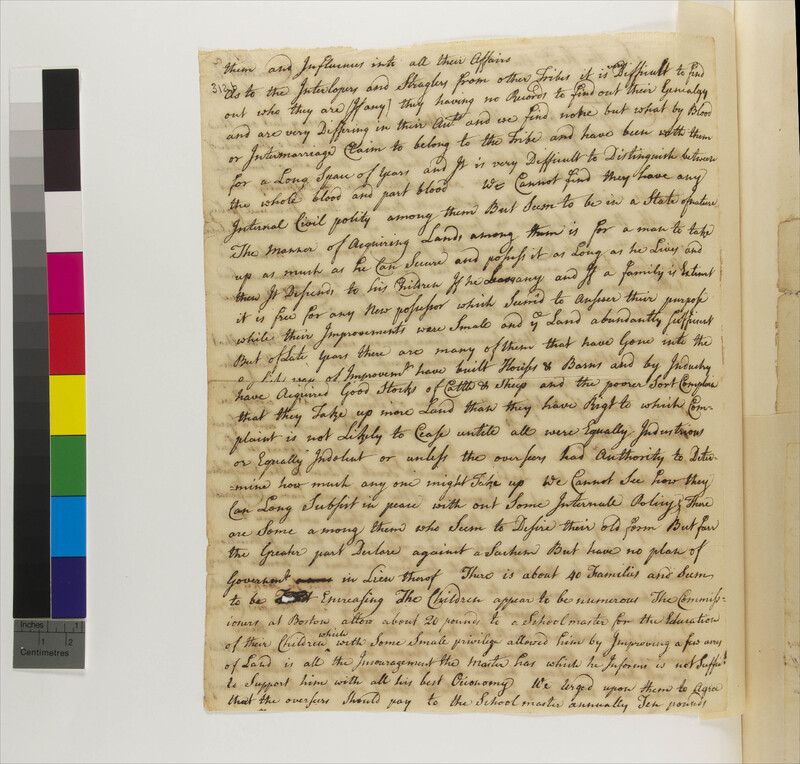 them and Influences into all their Affairs
313
As to the Interlopers and Straglers from other Tribes it is Difficult to find
out who they are [If any] they having no Records to find out their Genealgy
and are very Differing in their Acts and we find none but what by Blood
or Intermarriage Claim to belong to the Tribe and have been with them
for a Long Space of Years and It is very Difficult to Distinguish between
the whole blood and part blood We Cannot find they have any
Internal Civil polity among them But Seem to be in a State of nature
The Manner of Aquiring Lands among them is for a man to take
up as much as he Can Secure and possess it as Long as he Lives and
then It Desends to his Children If he any and If a family is Extinct
it is free for any New possessor which Seemd to Answer their purpose
while their Improvements were Small and ye Land abundantly Sufficient
But of Late Years there are many of them that have Gone into the
way of Improvemt have built Houses & Barns and by Industry
have Aquired Good Stocks of Cattle & Sheep and the poorer Sort Complain
that they Take up more Land than they have Right to which Com-
plaint is not Likely to Cease untile all were Equally Industrious
or Equally Indolent or unless the overseers had Authority to Deter-
mine how much any one might Take up We Cannot See how they
Can Long Subsist in peace with out Some Internale Policy There
are Some among them who Seem to Desire their old form But far
the Greater part Declare against a Sachem But have no plan of
Governmt in Lieu therof There is about 40 Families and Seem
to be Encreasing The Children appear to be numerous The Commiss-
ioners at Boston allow about 20 pounds to a School master for the Education
of their Children which with Some Smale privilege allowed him by Improving a few acres
of Land is all the Incouragement the Master has which he Informs is not Suffict
to Support him with all his best Oeconomy We Urged upon them to Agree
that the overseers Should pay to the School master annually Ten pounds
Inches
1
2
Centimetres